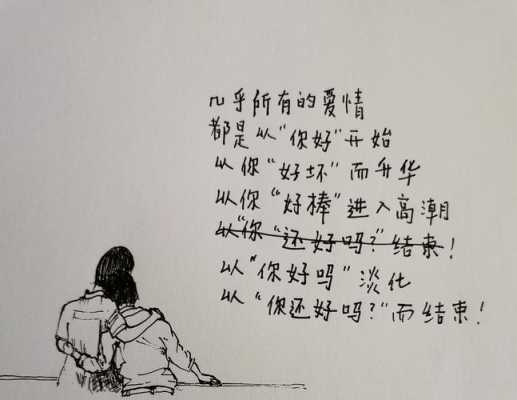 几乎所有的爱情
都是以"你好"开始
以你"好坏"而升华
以你"好棒"进入高潮
以"你"还好吗?"结束!
以"你好吗"淡化
以"你还好吗?"而结束!